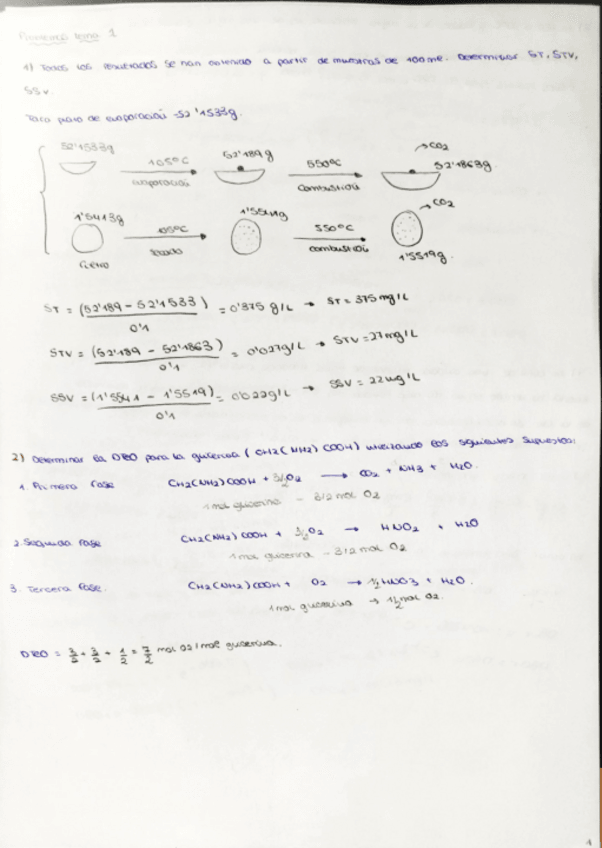 Problemas tema 1
1) Todos los resultados se han obtenido a partir de muestras de 100 ml. Determinar ST, STV,
SSV.
Tara plato de evaporación = 52'1533g.
52'1533g 105ºC evaporación 52'189 g 550ºC combustión CO2 52'1863g.
1'5413g filtro 105ºC secado 1'5541g 550ºC combustión CO2 1'5519g.
ST = (52'189 - 52'1533) / 0'1 = 0'375 g/L → ST = 375 mg/L
STV = (52'189 - 52'1863) / 0'1 = 0'027g/L → STV = 27mg/L
SSV = (1'5541 - 1'5519) / 0'1 = 0'022g/L → SSV = 22mg/L
2) Determinar la DBO para la glicerina ( CH2(NH2) COOH) utilizando los siguientes supuestos:
1. Primera fase CH2(NH2)COOH + 3/2O2 → CO2 + NH3 + H2O.
1 mol glicerina - 3/2 mol O2
2. Segunda fase CH2(NH2)COOH + 3/2O2 → HNO2 + H2O
1 mol glicerina - 3/2 mol O2
3. Tercera fase. CH2(NH2)COOH + O2 → 1/2HNO3 + H2O.
1 mol glicerina → 1/2 mol O2.
DBO = 3/2 + 3/2 + 1/2 = 7/2 mol O2 / mol glicerina.
1